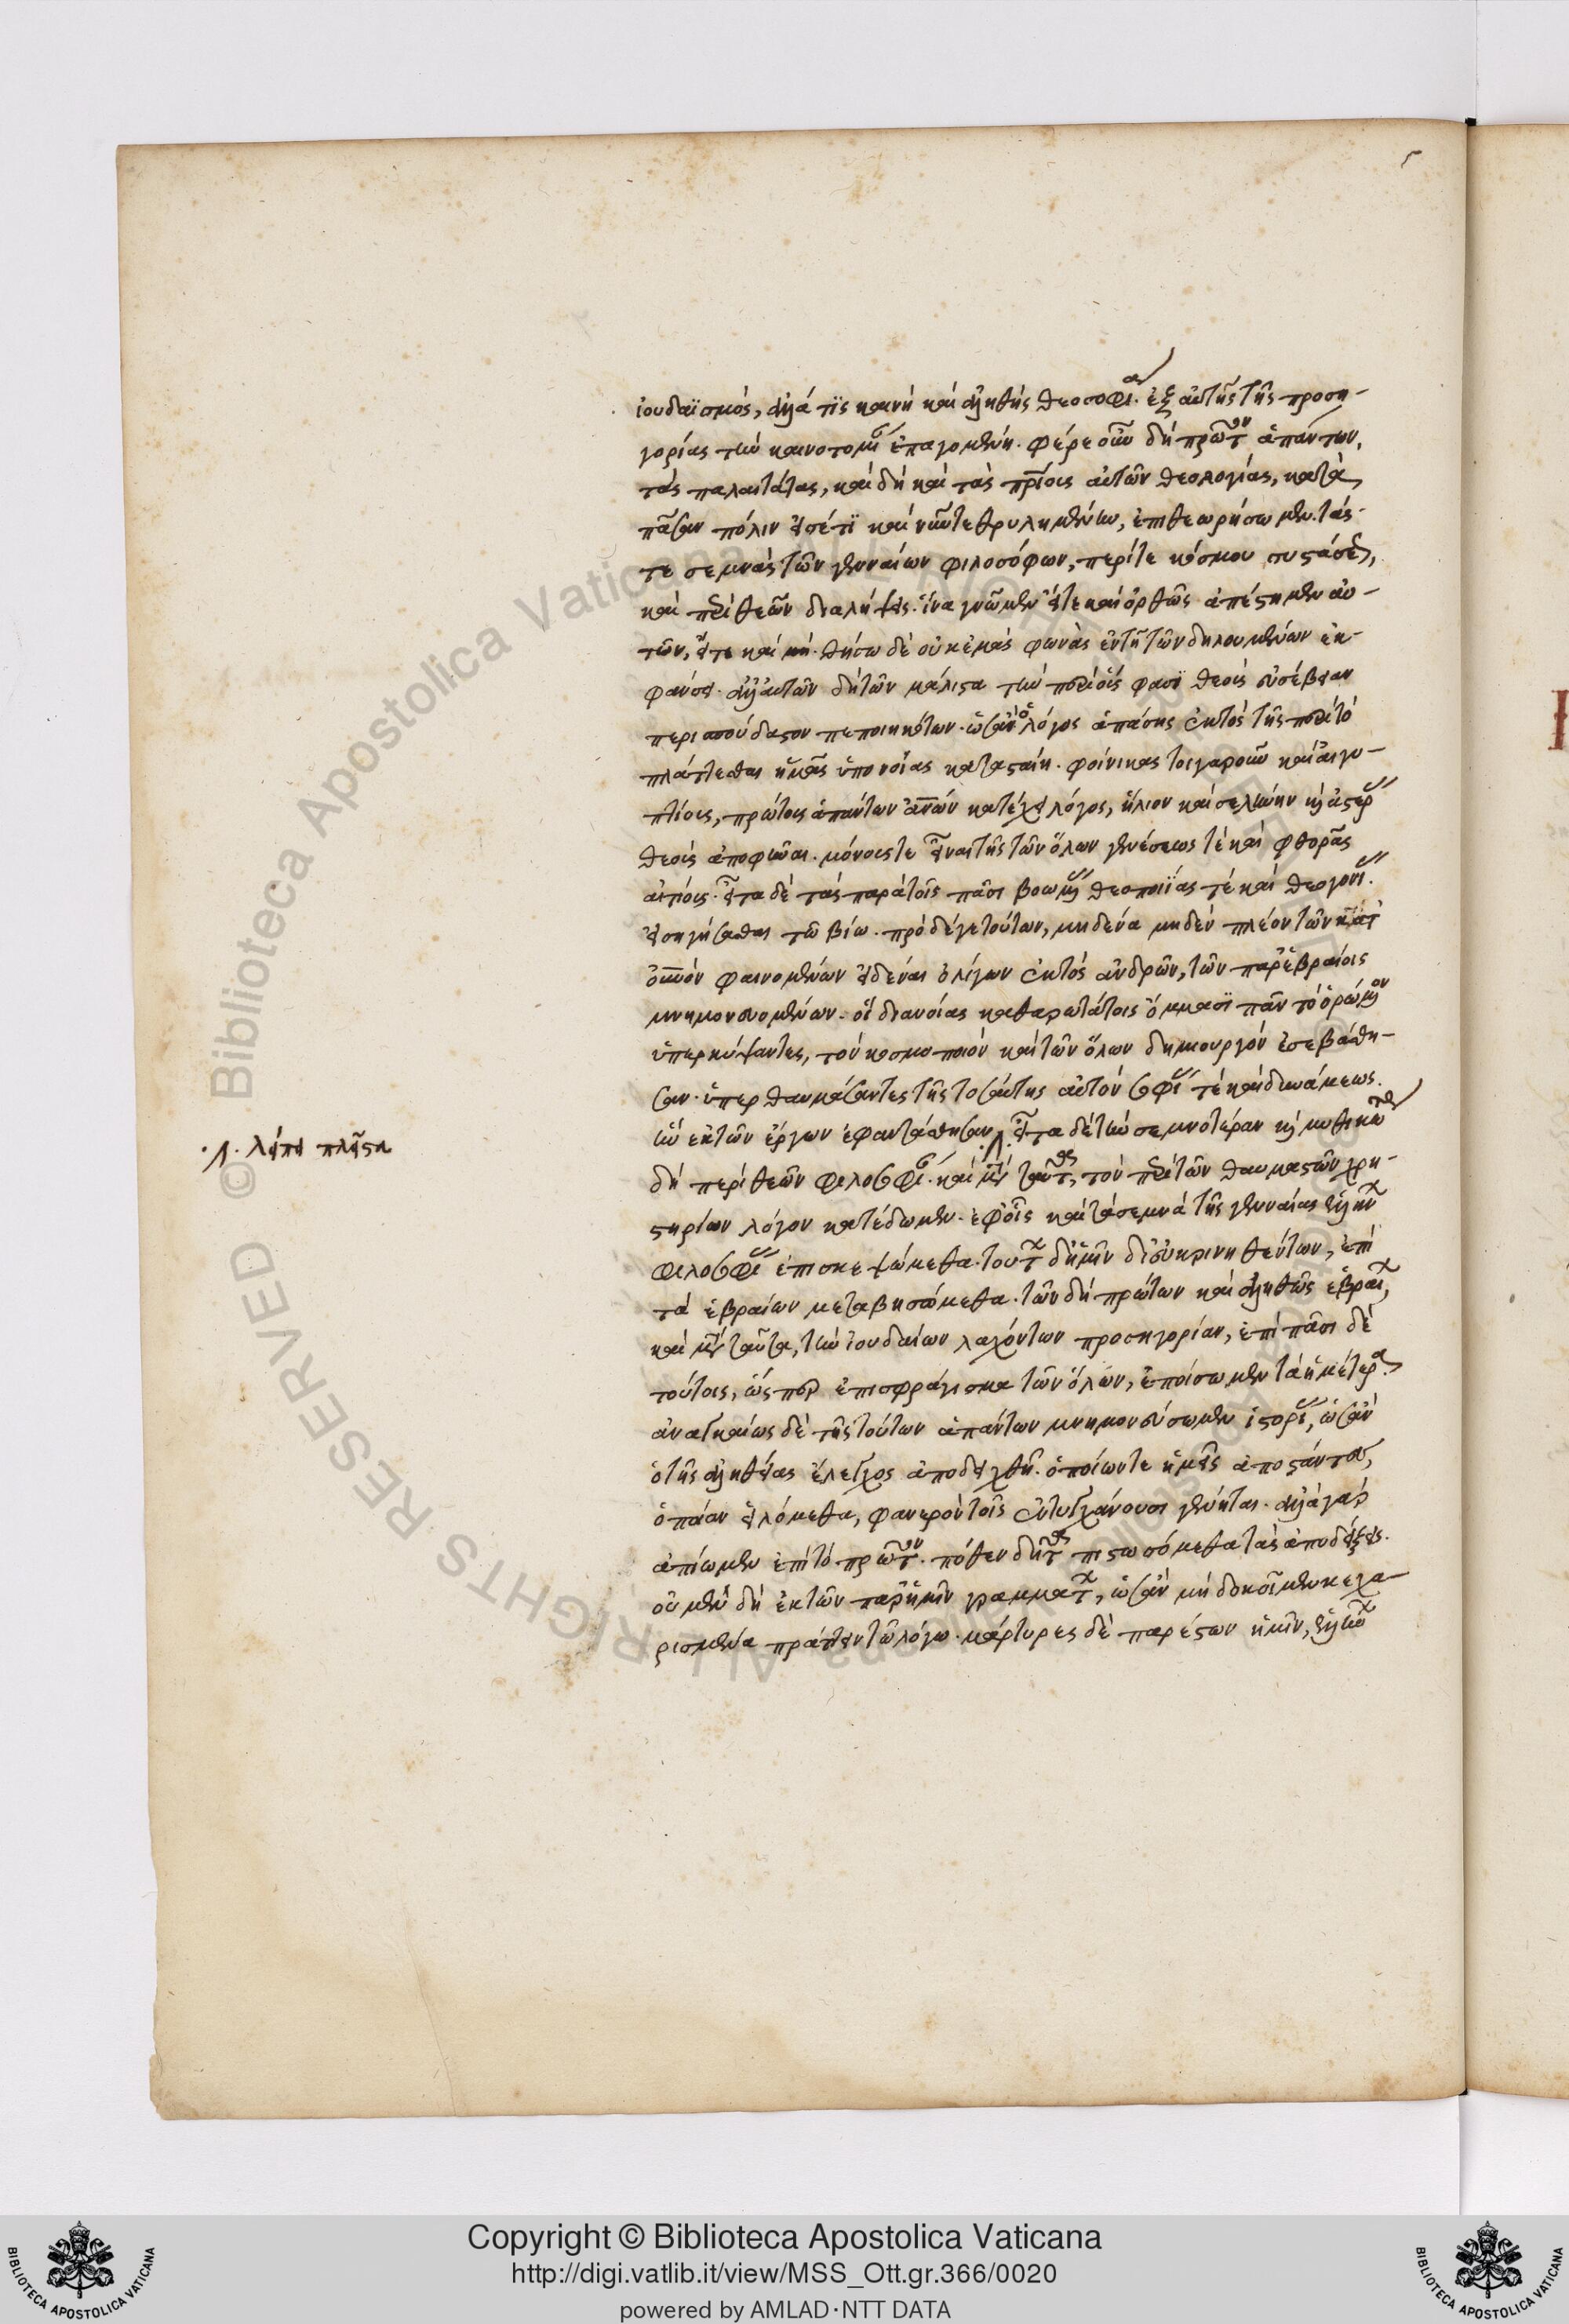 ἰουδαϊσμὸς, ἀλλά τις καινὴ καὶ ἀληθὴς θεοσοφία. ἐξ αὐτῆς τῆς προση-
γορίας τὴν καινοτομίαν ἐπαγομένη. φέρε οὖν δὴ πρῶτον ἁπάντων,
τὰς παλαιτάτας, καὶ δὴ καὶ τὰς πατρίοις αὐτῶν θεολογίας, κατὰ
πᾶσαν πόλιν εἰσέτι καὶ νῦν τεθρυλημένων, ἐπιθεωρήσωμεν. τάς
τε σεμνὰς τῶν γενναίων φιλοσόφων, περί τε κόσμου συστάσεως,
καὶ περὶ θεῶν διαλήψεις. ἵνα γνῶμεν εἴτε καὶ ὀρθῶς ἀπέστημεν αὐ-
τῶν, εἴτε καὶ μή. θήσω δὲ οὐκ ἐμὰς φωνὰς ἐν τῇ τῶν δηλουμένων ἐκ-
φάνσει. ἀλλ' αὐτῶν δὴ τῶν μάλιστα τὴν περὶ οὕς φασι θεοὺς εὐσέβειαν
περισπούδαστον πεποιημένων. ὡσὰν ὁ λόγος ἁπάσης ἐκτὸς τῆς περὶ τὸ
πλάττεσθαι ἡμᾶς ὑπονοίας κατασταίη. φοίνικας τοιγαροῦν καὶ αἰγυ-
πτίους, πρώτους ἁπάντων ἀνθρώπων κατέχει λόγος, ἥλιον καὶ σελήνην καὶ ἀστέρας
θεοὺς ἀποφῆναι. μόνους τε εἶναι τῆς τῶν ὅλων γενέσεως τὲ καὶ φθορᾶς
αἰτίους. εἶτα δὲ τὰς παρὰ τοῖς πᾶσι βοωμένας θεοποιΐας τὲ καὶ θεογονίας.
εἰσηγήσασθαι τῷ βίῳ. πρὸ δέ γε τούτων, μηδένα μηδὲν πλέον τῶν κατ'
οὐρανὸν φαινομένων εἰδέναι ὀλίγων ἐκτὸς ἀνδρῶν, τῶν παρ' ἑβραίοις
μνημονευομένων. οἳ διανοίας καθαρωτάτοις ὄμμασι πᾶν τὸ ὁρώμενον
ὑπερκύψαντες, τὸν κοσμοποιὸν καὶ τῶν ὅλων δημιουργὸν ἐσεβάσθη-
σαν. ὑπερθαυμάσαντες τῆς τοσαύτης αὐτὸν σοφίας τὲ καὶ δυνάμεως.
ἣν ἐκ τῶν ἔργων ἐφαντάσθησαν ·/. εἶτα δὲ τὴν σεμνοτέραν καὶ μυθικὴν
δὴ περὶ θεῶν φιλοσοφίαν. καὶ μετὰ ταύτης, τὸν περὶ τῶν θαυμαστῶν χρη-
στηρίων λόγον κατέδωμεν. ἐφ' οἷς καὶ τὰ σεμνὰ τῆς γενναίας ἑλλήνων
φιλοσοφίας ἐπισκεψώμεθα. τούτων δ' ἡμῖν διευκρινηθέντων, ἐπὶ
τὰ ἑβραίων μεταβησόμεθα. τῶν δὴ πρώτων καὶ ἀληθῶς ἑβραίων,
καὶ μετὰ ταῦτα, τὴν ἰουδαίων λαχόντων προσηγορίαν, ἐπὶ πᾶσι δὲ
τούτοις, ὥσπερ ἐπισφράγισμα τῶν ὅλων, ἐποίσωμεν τὰ ἡμέτερα.
ἀναγκαίως δὲ τῆς τούτων ἁπάντων μνημονεύσωμεν ἱστορίας, ὡσὰν
ὁ τῆς ἀληθείας ἔλεγχος ἀποδειχθῇ. ὁποίων τε ἡμεῖς ἀποστάντες,
ὁποίαν εἱλόμεθα, φανερὸν τοῖς ἐντυγχάνουσι γένηται. ἀλλὰ γὰρ
ἀπίωμεν ἐπὶ τὸ πρῶτον. πόθεν δῆτα πιστωσόμεθα τὰς ἀποδείξεις.
οὐ μὲν δὴ ἐκ τῶν παρ' ἡμῖν γραμμάτων, ὡσὰν μὴ δοκοῖμεν κεχα-
ρισμένα πράττειν τῷ λόγῳ. μάρτυρες δὲ παρέστων ἡμῖν, ἑλλήνων
·/. λείπει πλεῖστα
Copyright © Biblioteca Apostolica Vaticana
http://digi.vatlib.it/view/MSS_Ott.gr.366/0020
powered by AMLAD·NTT DATA
BIBLIOTECA APOSTOLICA VATICANA
BIBLIOTECA APOSTOLICA VATICANA